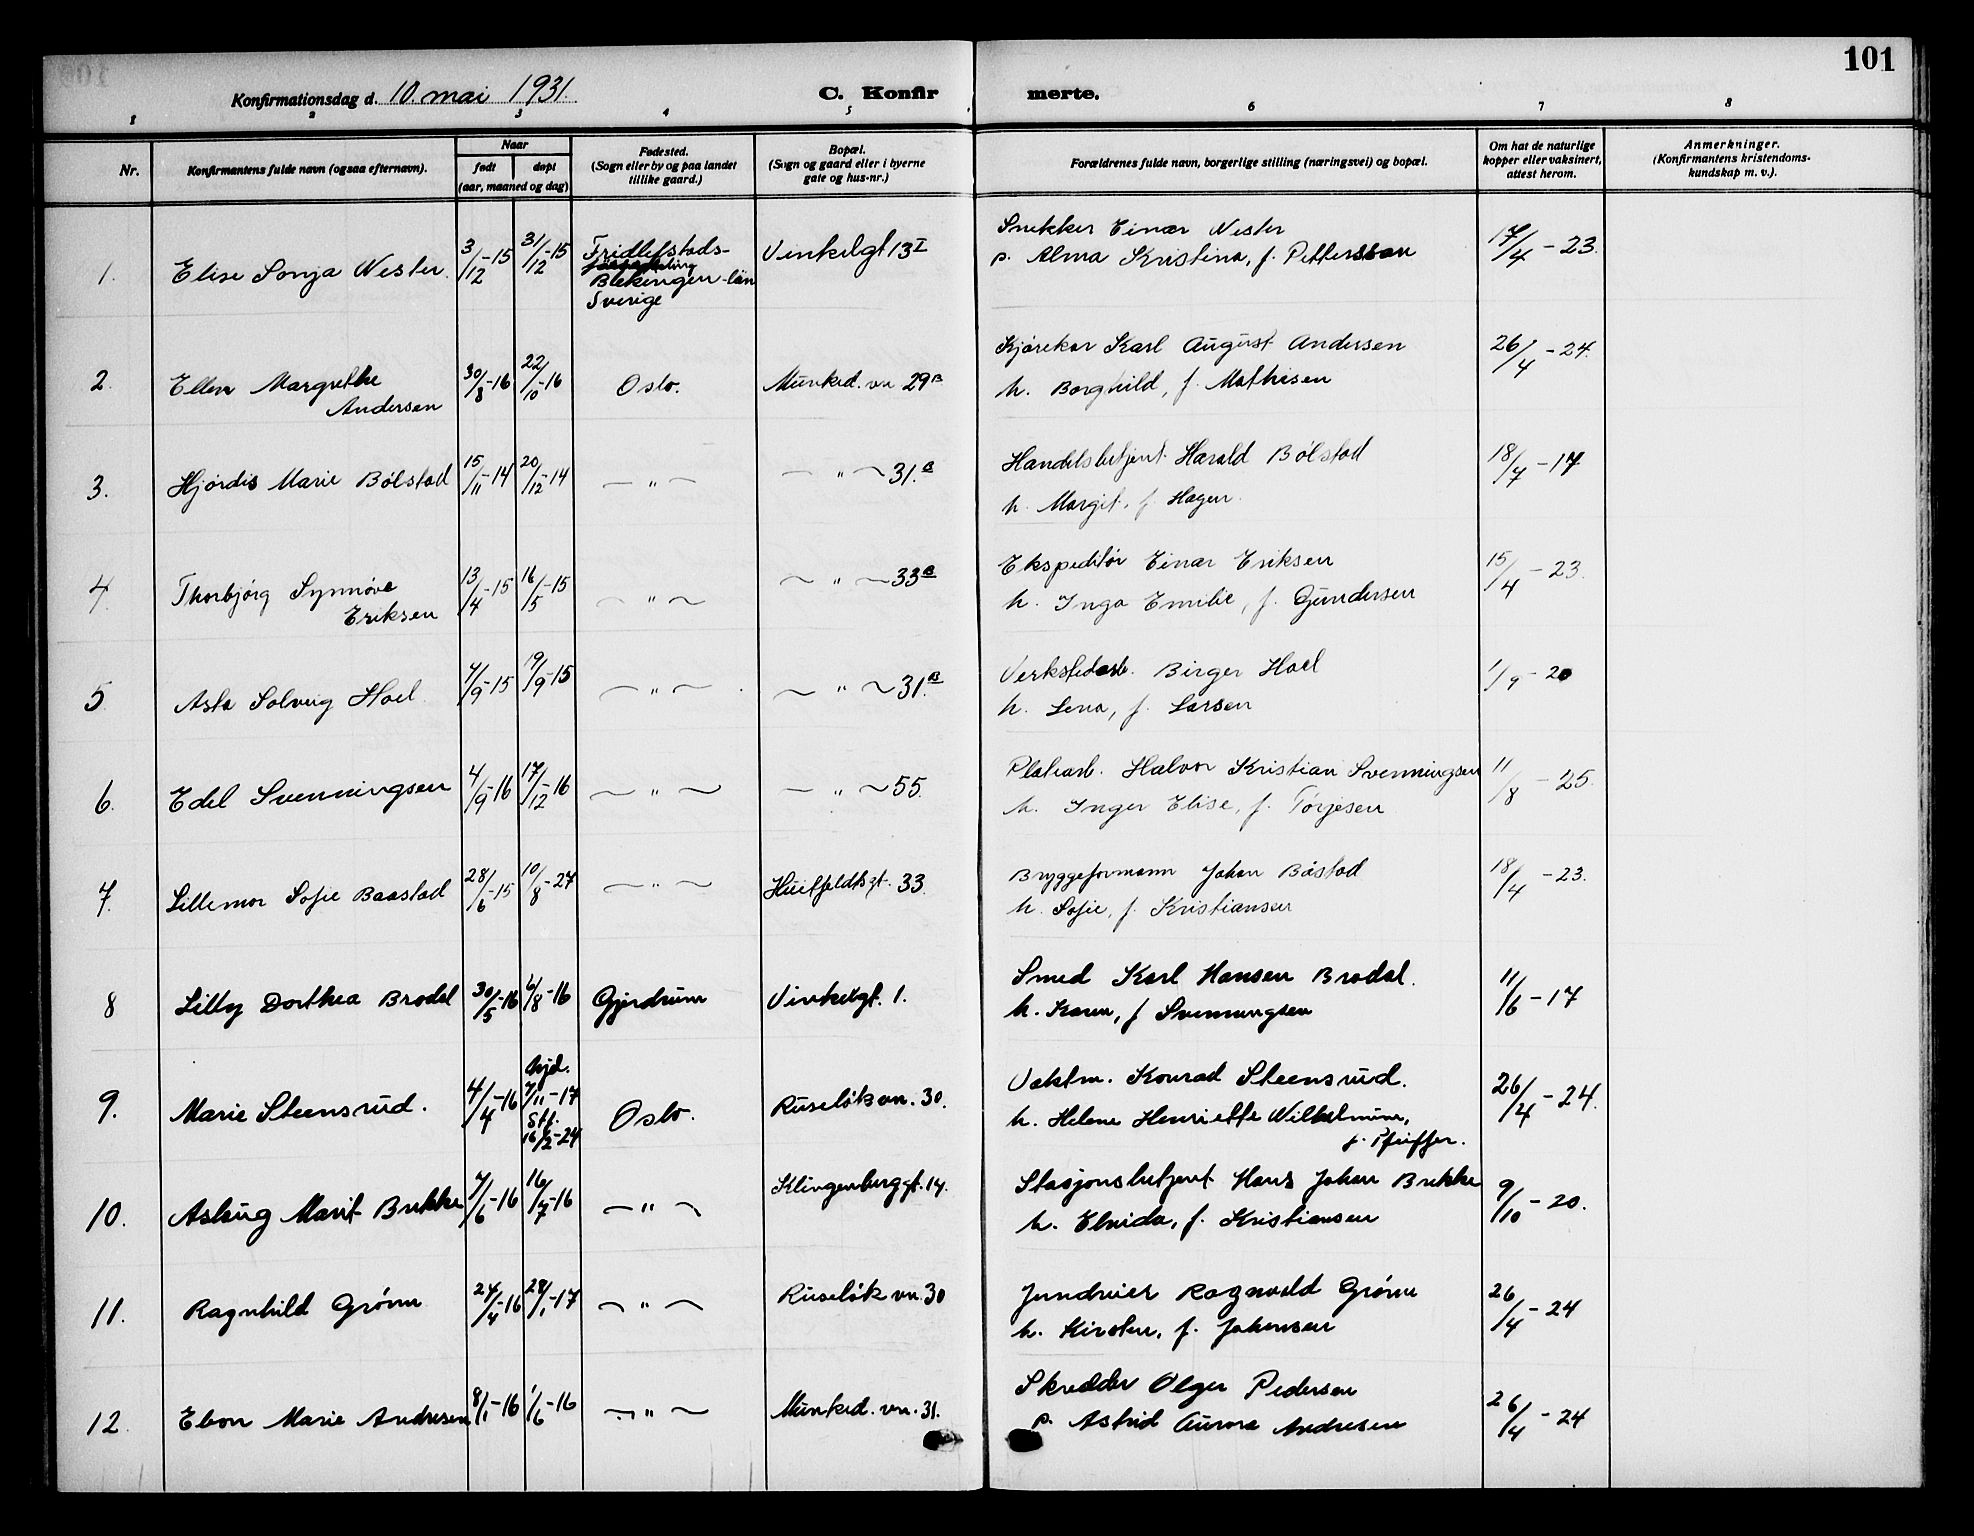 101
Konfirmationsdag d. 10. mai 1931.
C. Konfir merte.
1 2 3 4 5 6 7 8
Nr.
Konfirmantens fulde navn (ogsaa efternavn).
Naar
født
døpt
(aar, maaned og dag)
Fødested.
(Sogn eller by og paa landet
tillike gaard.)
Bopæl.
(Sogn og gaard eller i byerne
gate og hus-nr.)
Forældrenes fulde navn, borgerlige stilling (næringsvei) og bopæl.
Om hat de naturlige
kopper eller vaksinert,
attest herom.
Anmerkninger.
(Konfirmantens kristendoms-
kundskap m. v.).
1. Elise Sonja Nester. 3/12-15 31/12-15 Fridlefstads-
Blekingen-län
Sverige
Vinkelgt 13 I
Snekker Einar Nester
p. Alma Kristina, f. Pettersson
17/4-23.
2. Ellen Margrethe
Andersen
30/8-16 22/10-16 Oslo. Munked. vn 29 B
Kjørekar Karl August Andersen
h. Borghild, f. Mathisen
26/4-24.
3. Hjørdis Marie Bølstad 15/11-14 20/12-14 — " — — " — 31. B
Handelsbetjent Harald Bølstad
h. Margit, f. Hagen.
18/7-17
4. Thorbjørg Synnøve
Eriksen
13/4-15 16/5-15 — " — — " — 33 B
Ekspeditør Einar Eriksen
h. Inga Emilie, f. Gundersen
15/4-23.
5 Asta Solveig Hoel 7/9-15 19/9-15 — " — . — " — 31. B
Verkstedarb. Birger Hoel
h. Lena, f. Larsen
1/9-20
6. Edel Svenningsen 4/9-16 17/12-16 — " — — " — 55.
Platearb. Halvor Kristian Svenningsen
h. Inger Elise, f. Torjesen
11/8-25.
7. Lillemor Sofie Baastad 28/6-15 10/8-27 — " — Huitfeldtsgt. 33.
Bryggeformann Johan Båstad
h. Sofie, f. Kristiansen
18/4-23.
8 Lilly Dorthea Brodal 30/5-16 6/8-16 Gjerdrum Vinkelgt. 1.
Smed Karl Hansen Brodal.
h. Karen, f. Svenningsen
11/6-17
9. Marie Steensrud. 4/4-16 hjd.
7/11-17
Stf.
16/2-24
Oslo. Ruseløkvn. 30.
Vaktm. Konrad Steensrud.
h. Helene Henriette Wilhelmine,
f. Pfeiffer.
26/4-24.
10. Aslaug Marit Brekke 7/6-16 16/7-16 — " — Klingenberggt. 14.
Stasjonsbetjent Hans Johan Brekke
h. Elnida, f. Kristiansen
9/10-20.
11. Ragnhild Grønn 24/4-16 28/1-17 — " — Ruseløkvn. 30
Ragnvald Grønn
h. Kirsten, f. Johansen
26/4-24
12. Ebon Marie Andresen 8/1-16 1/6-16 — " — Munked. vn. 31.
Skredder Olger Pedersen
p. Astrid Aurora Andresen
26/4-24